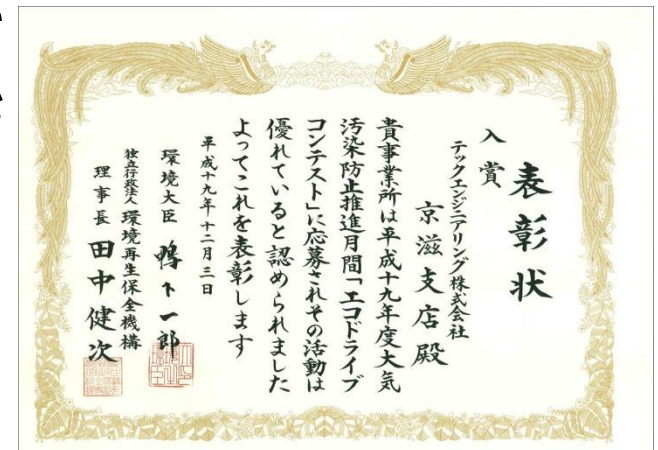 表彰状
入賞
テックエンジニアリング株式会社
京滋支店殿
貴事業所は平成十九年度大気
汚染防止推進月間「エコドライブ
コンテスト」に応募されその活動は
優れていると認められました
よってこれを表彰します
平成十九年十二月三日
環境大臣 鴨下一郎
独立行政法人 環境再生保全機構
理事長 田中健次